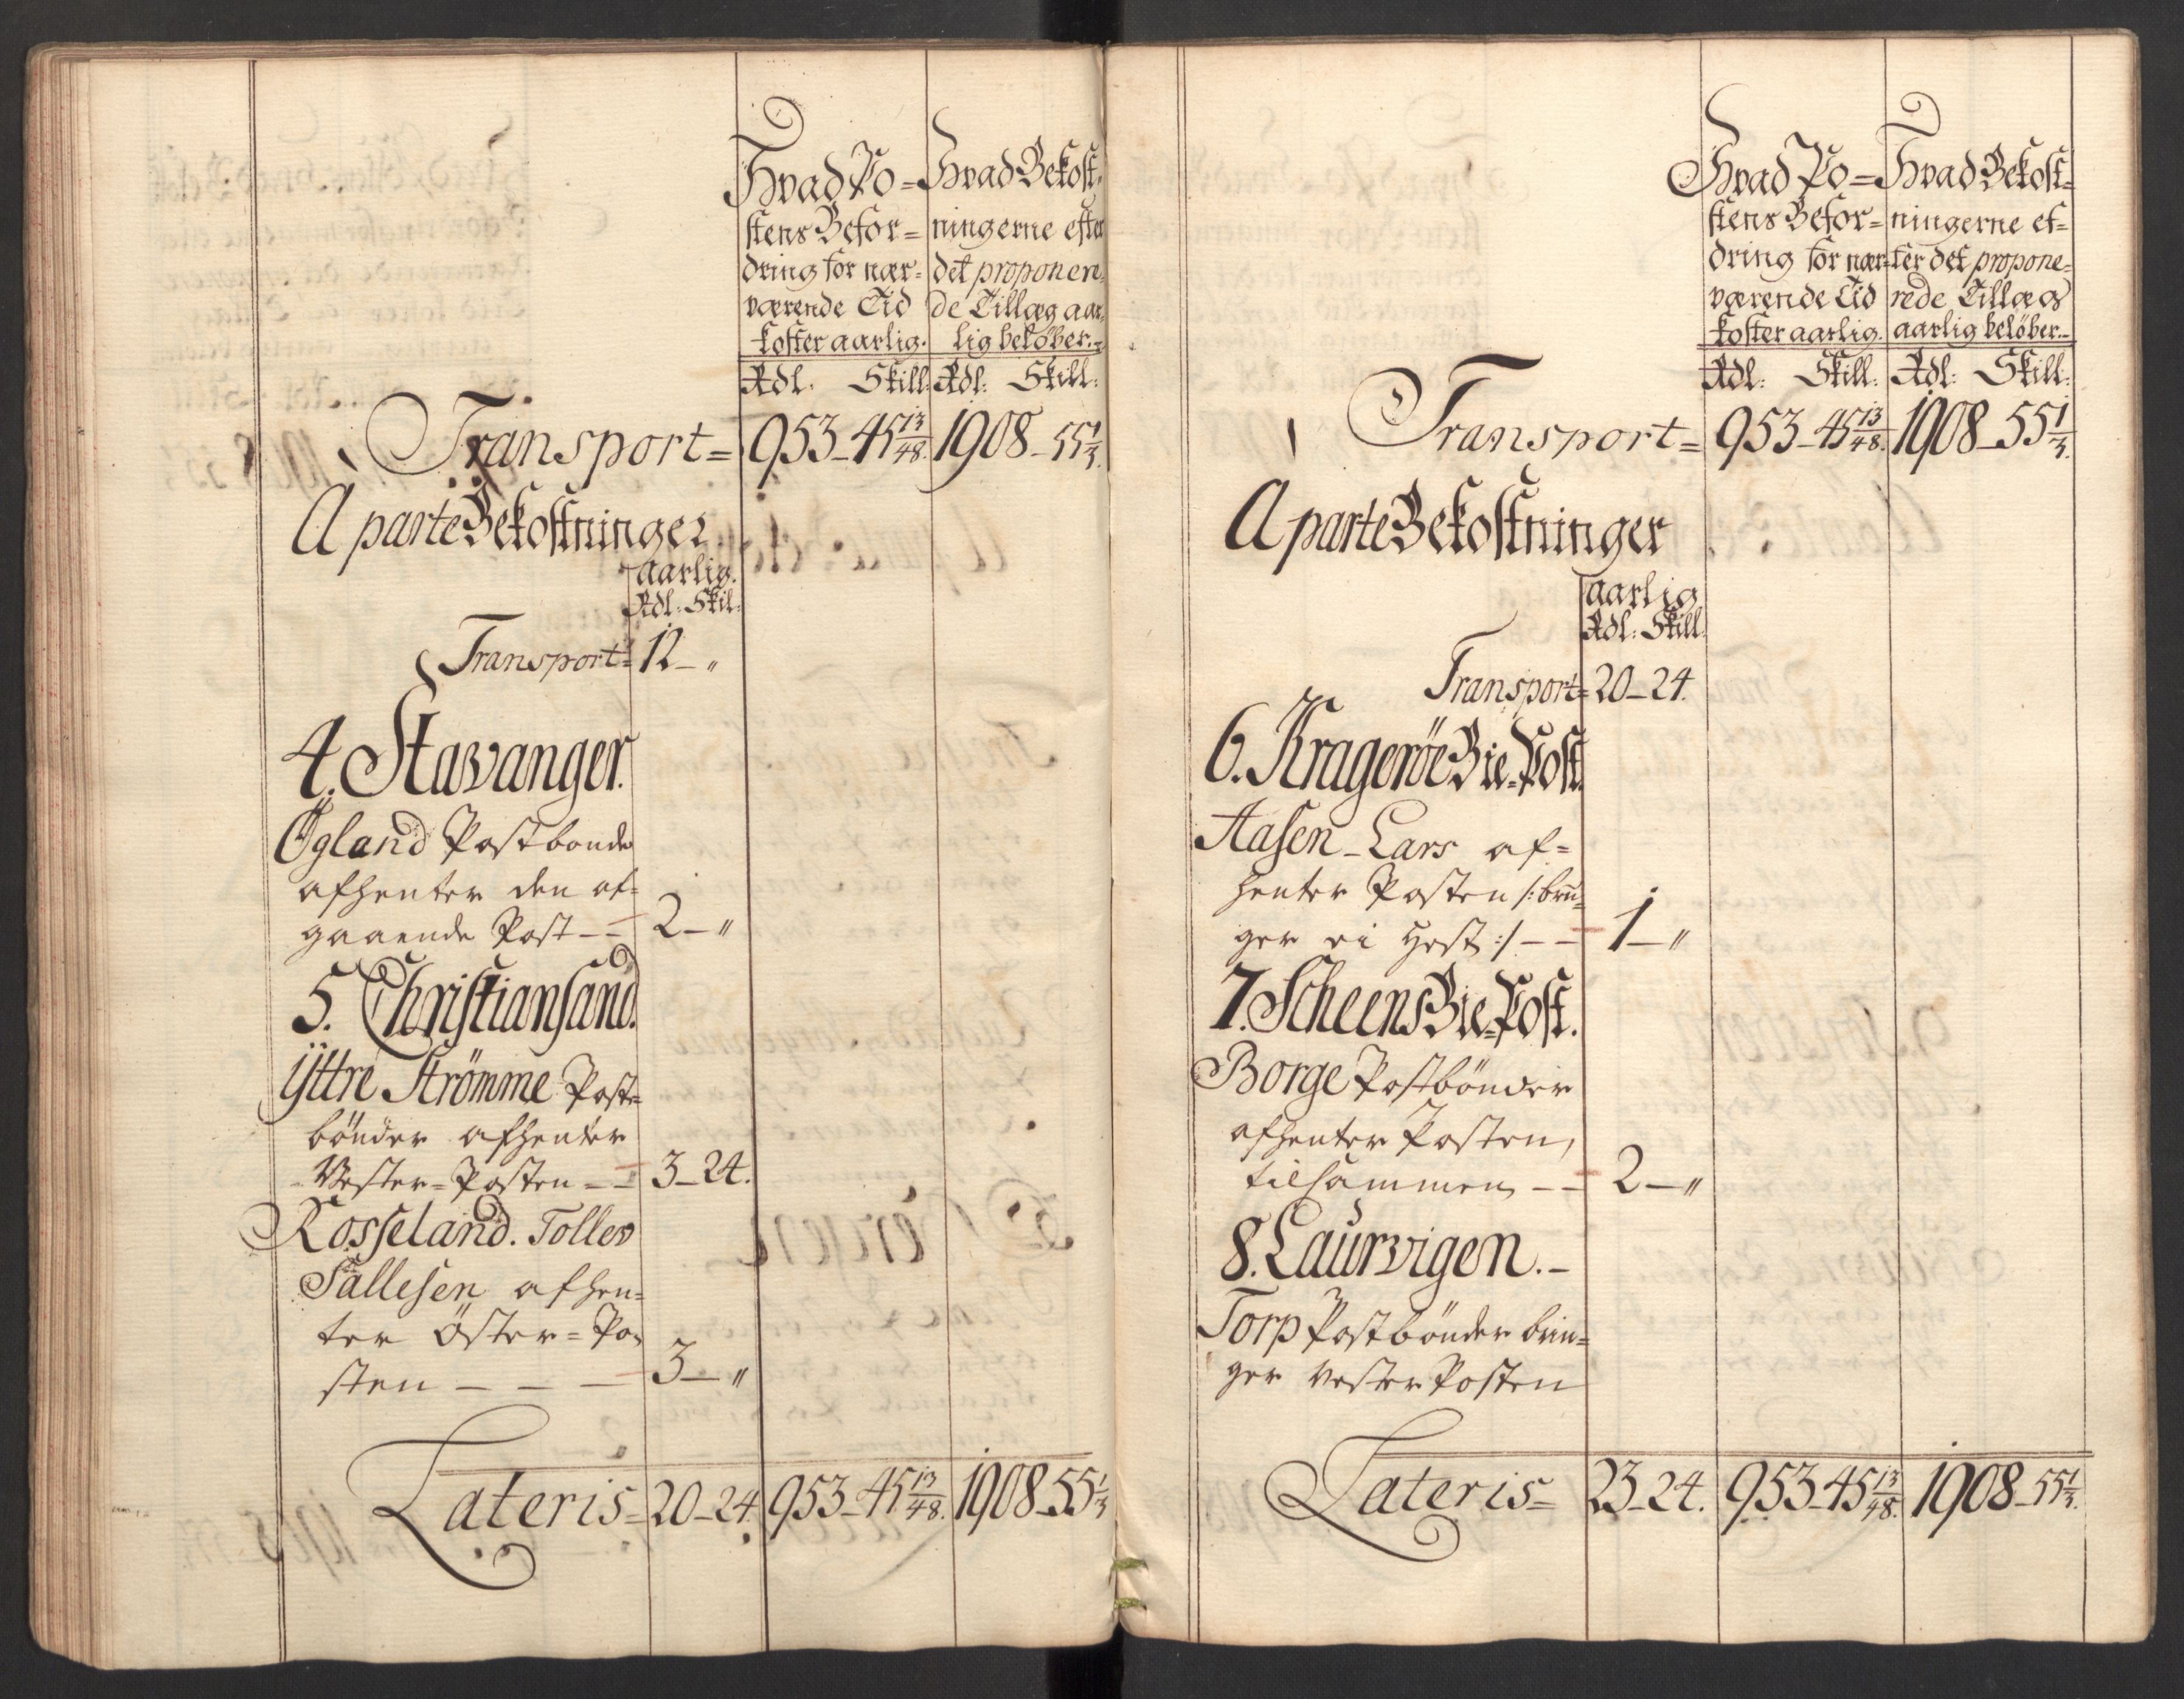 Hvad Po=
stens Befor=
dring for nær=
værende Tid
koster aarlig.
Rdl. Skill:
Hvad Bekost=
ningerne efter
det proponen=
de Tillæg aar=
lig beløber.=
Rdl: Skill:
Transport= 953-45 13/48. 1908-55 1/3.
Aparte Bekostninger.
aarlig.
Rdl: Skil:
Transport= 12-"
4. Stavanger.
Ögland Postbonde
afhenter den af=
gaaende Post-- 2-"
5. Christiansand.
Ÿttre Strömme Post=
bönder afhenter
Vester=Posten-- 3-24.
Rosseland. Tollev
Sallesen afhen=
ter Öster=Po=
sten --- 3-"
Lateris= 20-24. 953-45 13/48. 1908-55 1/3
Hvad Po=
stens Befor=
dring for nær=
værende Tid
koster aarlig.
Rdl: Skill:
Hvad Bekost=
ningerne ef=
ter det propone=
rede Tillæg
aarlig beløber.=
Rdl: Skill:
Transport= 953-45 13/48. 1908-55 1/3.
Aparte Bekostninger
aarlig
Rdl: Skill.
Transport= 20-24.
6. Kragerøe Bie=Post.
Aasen-Lars af=
henter Posten /: bru=
ger ei Hest :/-- 1-"
7. Scheens Bie=Post.
Borge Postbönder
afhenter Posten,
tilsammen -- 2-"
8. Laurvigen.-
Torp Postbönder brin=
ger Vester Posten
Lateris= 23-24. 953-45 13/48. 1908-55 1/3.